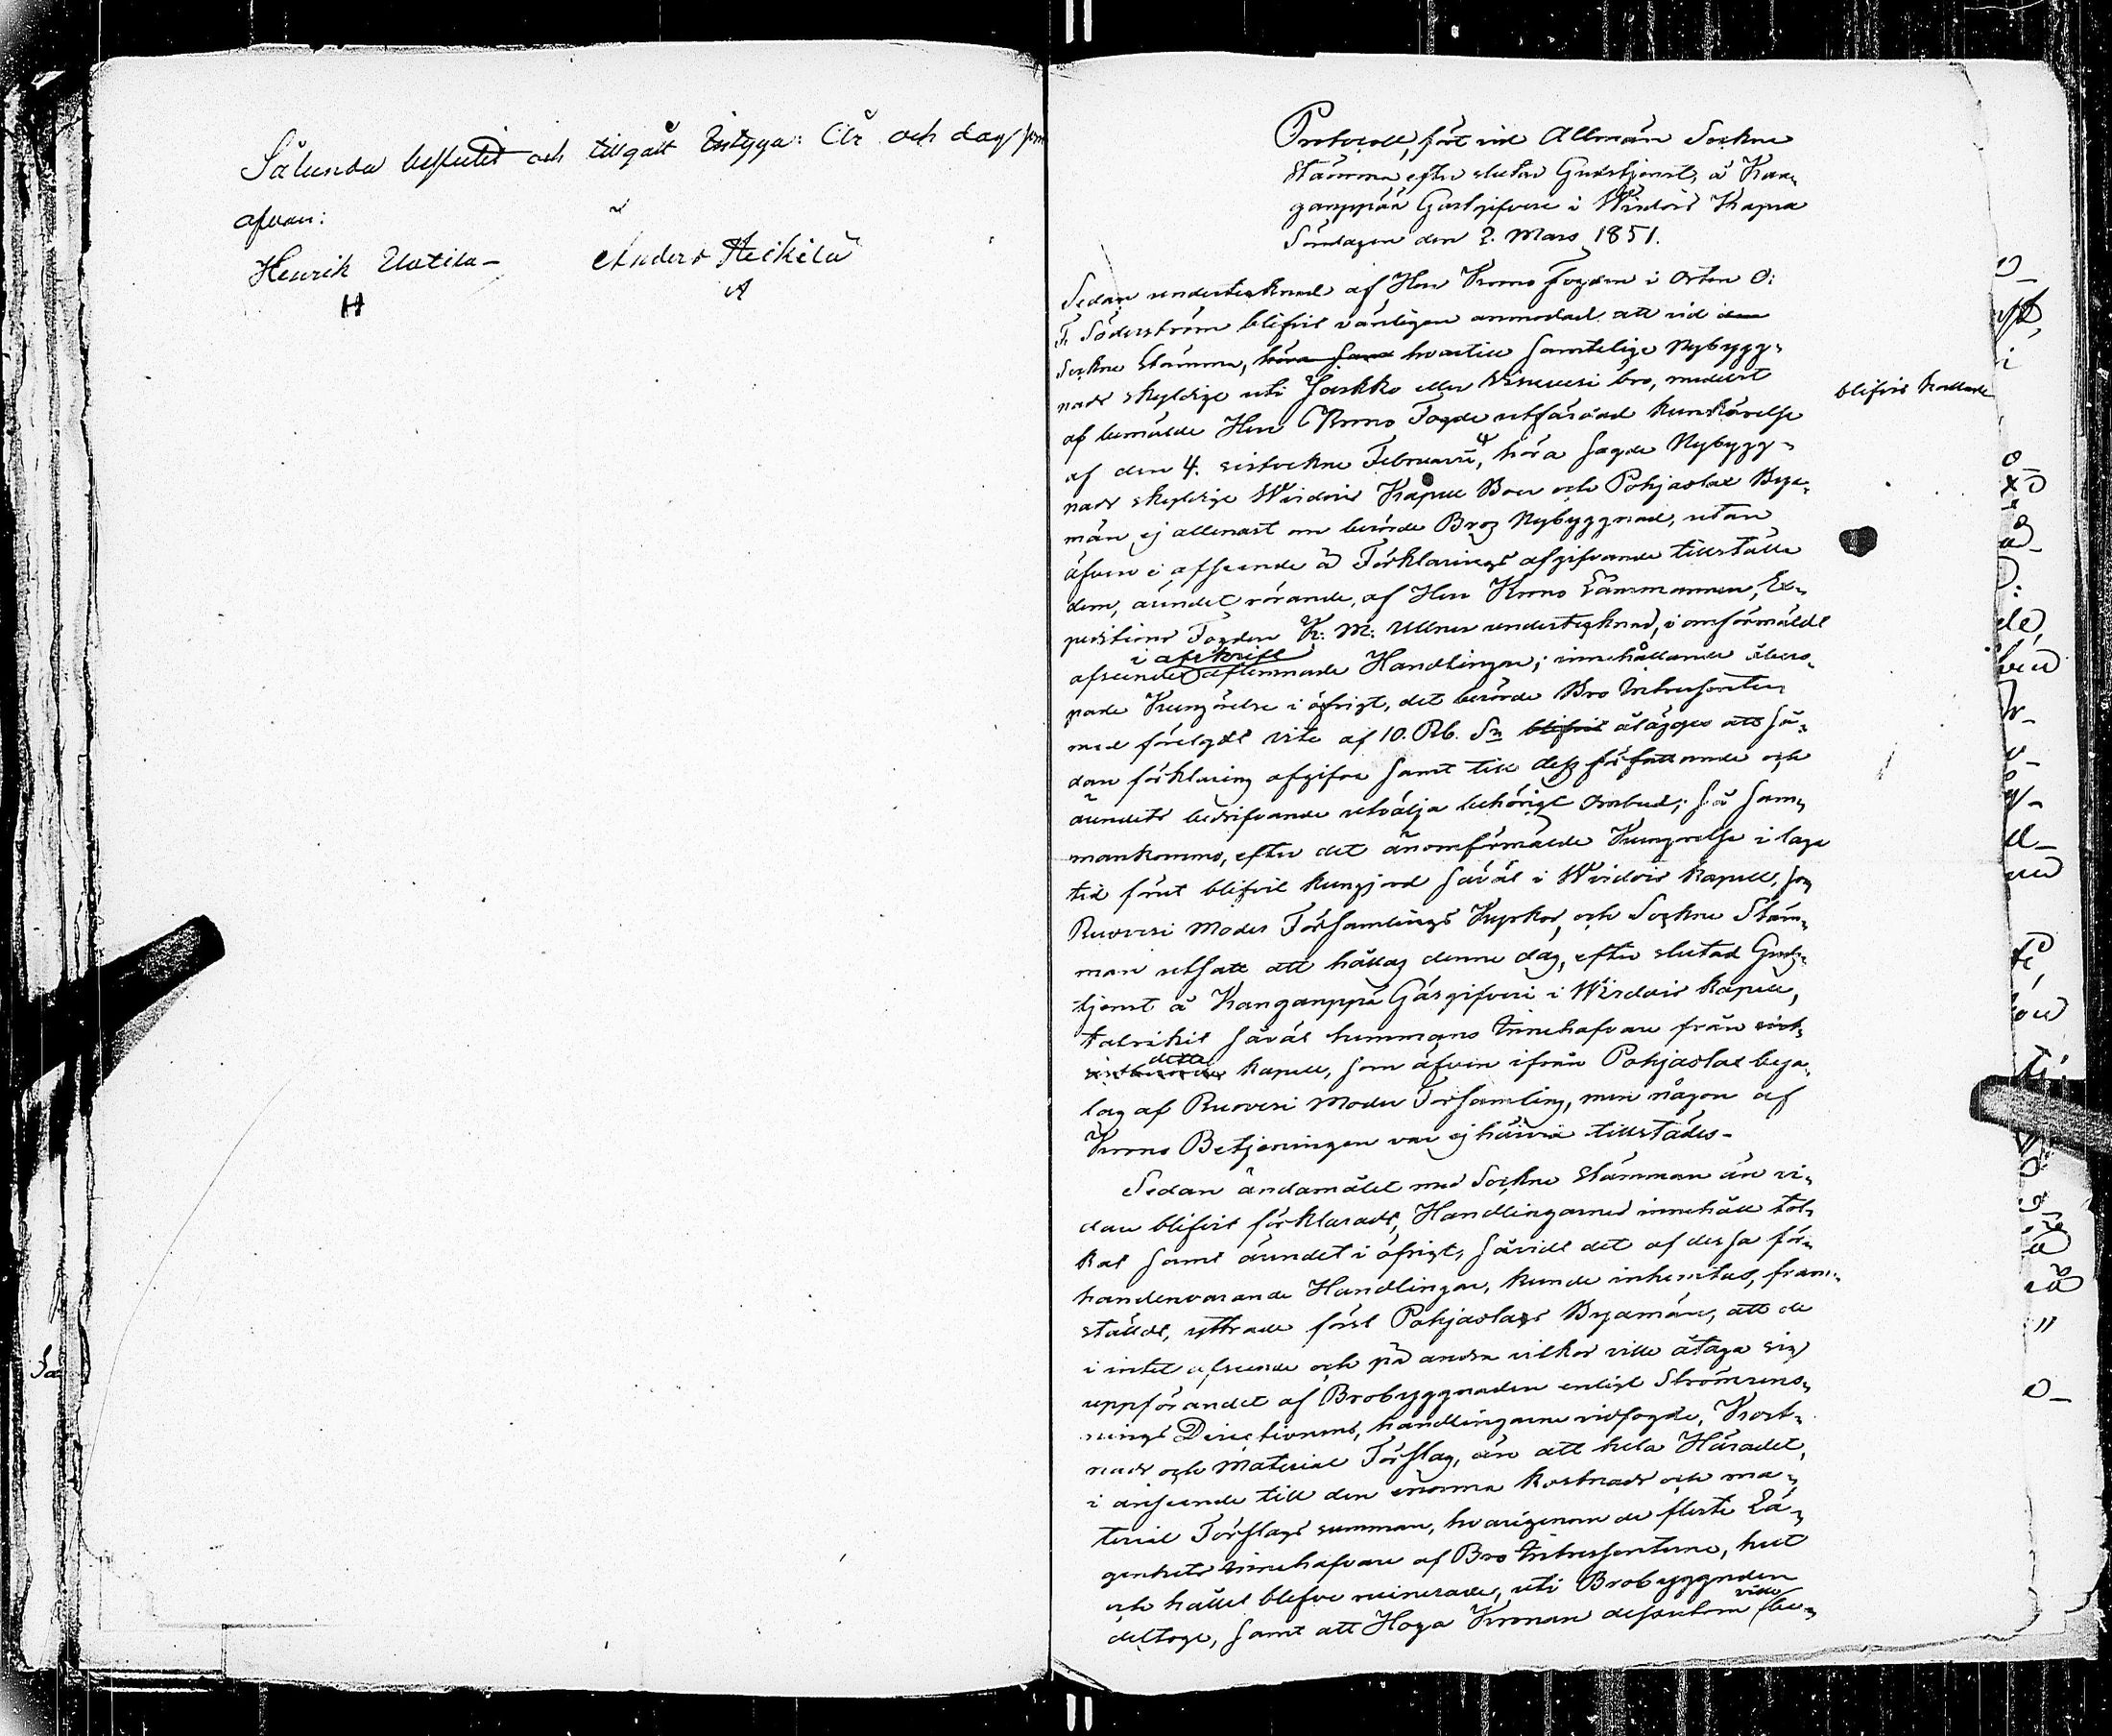 Sålunda beslutit och tillgått intyga: År och dag som
ofvan:
Henrik Uotila- Anders Heikilä
H A
Protocoll, fört vid Allmän Sockne
Stämma efter slutad Gudstjenst, å Kan-
ganpää Gästgifveri i Wirdois Kapell
Söndagen den 2. Mars 1851.
Sedan undertecknad af Herr Krono Fogden i Orten O:
F. Söderström blifvit vänligen anmodad att vid
Sockne Stämma, hvartill samtelige Nybygg-
blifvit kallade
nads skyldige uti Jäskko eller Visuvesi bro, medelst
af bemälde Herr Krono Fogde utfärdad kundgörelse
af den 4. sistvekne Februarii, höra sagde Nybygg-
nads skyldige Wirdois Kapell Boer och Pohjaslax Bya-
män, ej allenast om berörde Bros Nybyggnad, utan
äfven i afseende å Förklarings afgifvande tillställa
dem, ärendet rörande, af Herr Krono Länsmannen, Ex-
peditions Fogden K: M: Ullner undertecknad, i omförmäldt
i afskrift
afseende aflemnade Handlingar; innehållande åbero-
pade Kungörelse i öfrigt, det berörde Bro Intressenter
med förelagdt vite af 10. Rb. Sr blifvit ålagge att så-
dan förklaring afgifva samt till dess författande och
ärendets bedrifvande utvälja behörigt ombud; så sam-
mankommo, efter det än omförmälde Kungörelse i laga
tid förut blifvit kungjord såväl i Wirdois Kapell, som
Ruovesi Moder Församlings Kyrkor, och Sockne Stäm-
man utsatt att hållas denne dag, efter slutad Guds-
tjenst å Kanganpää Gäsgifveri i Wirdois Kapell,
talrikit såväl hemmans Innehafvare från
detta
Kapell, som äfven ifrån Pohjaslax bya-
lag af Ruovesi Moder Församling, men någon af
Krono Betjeningen var ej härvid tillstädes-
Sedan ändamålet med Sockne Stämman än vi-
dare blifvit förklaradt, Handlingarnes innehåll tol-
kat samt ärendet i öfrigt, såvidt det af dessa för-
handenvarande Handlingar, kunde inhemtas, fram-
stäldt, yttrade först Pohjaslags Byamän, att de
i intet afseende och på andra vilkor ville åtaga sig
uppförandet af Brobyggnaden enligt Strömrens-
nings Directionens, handlingarne vidfogde, Kost-
nads och Material Förslag, än att hela Häradet,
i anseende till den enorma kostnads och ma-
terial Förslags summan, hvarigenom de fleste Lä-
genhets Innehafvare af Bro Intressenterne, helt
och hållet blefve ruinerade, uti Brobyggnaden
ville
deltoge, samt att Höga Kronan dessutom be-